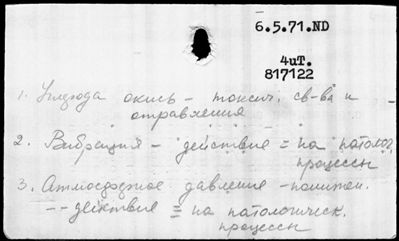 6.5.71.ND
4иТ.
817122
1. Углерода окись – токсич. св-ва и
отравления
2. Вибрация – действие = на патолог.
процессы
3. Атмосферное давление – понижен.
-- действие = на патологическ.
процессы